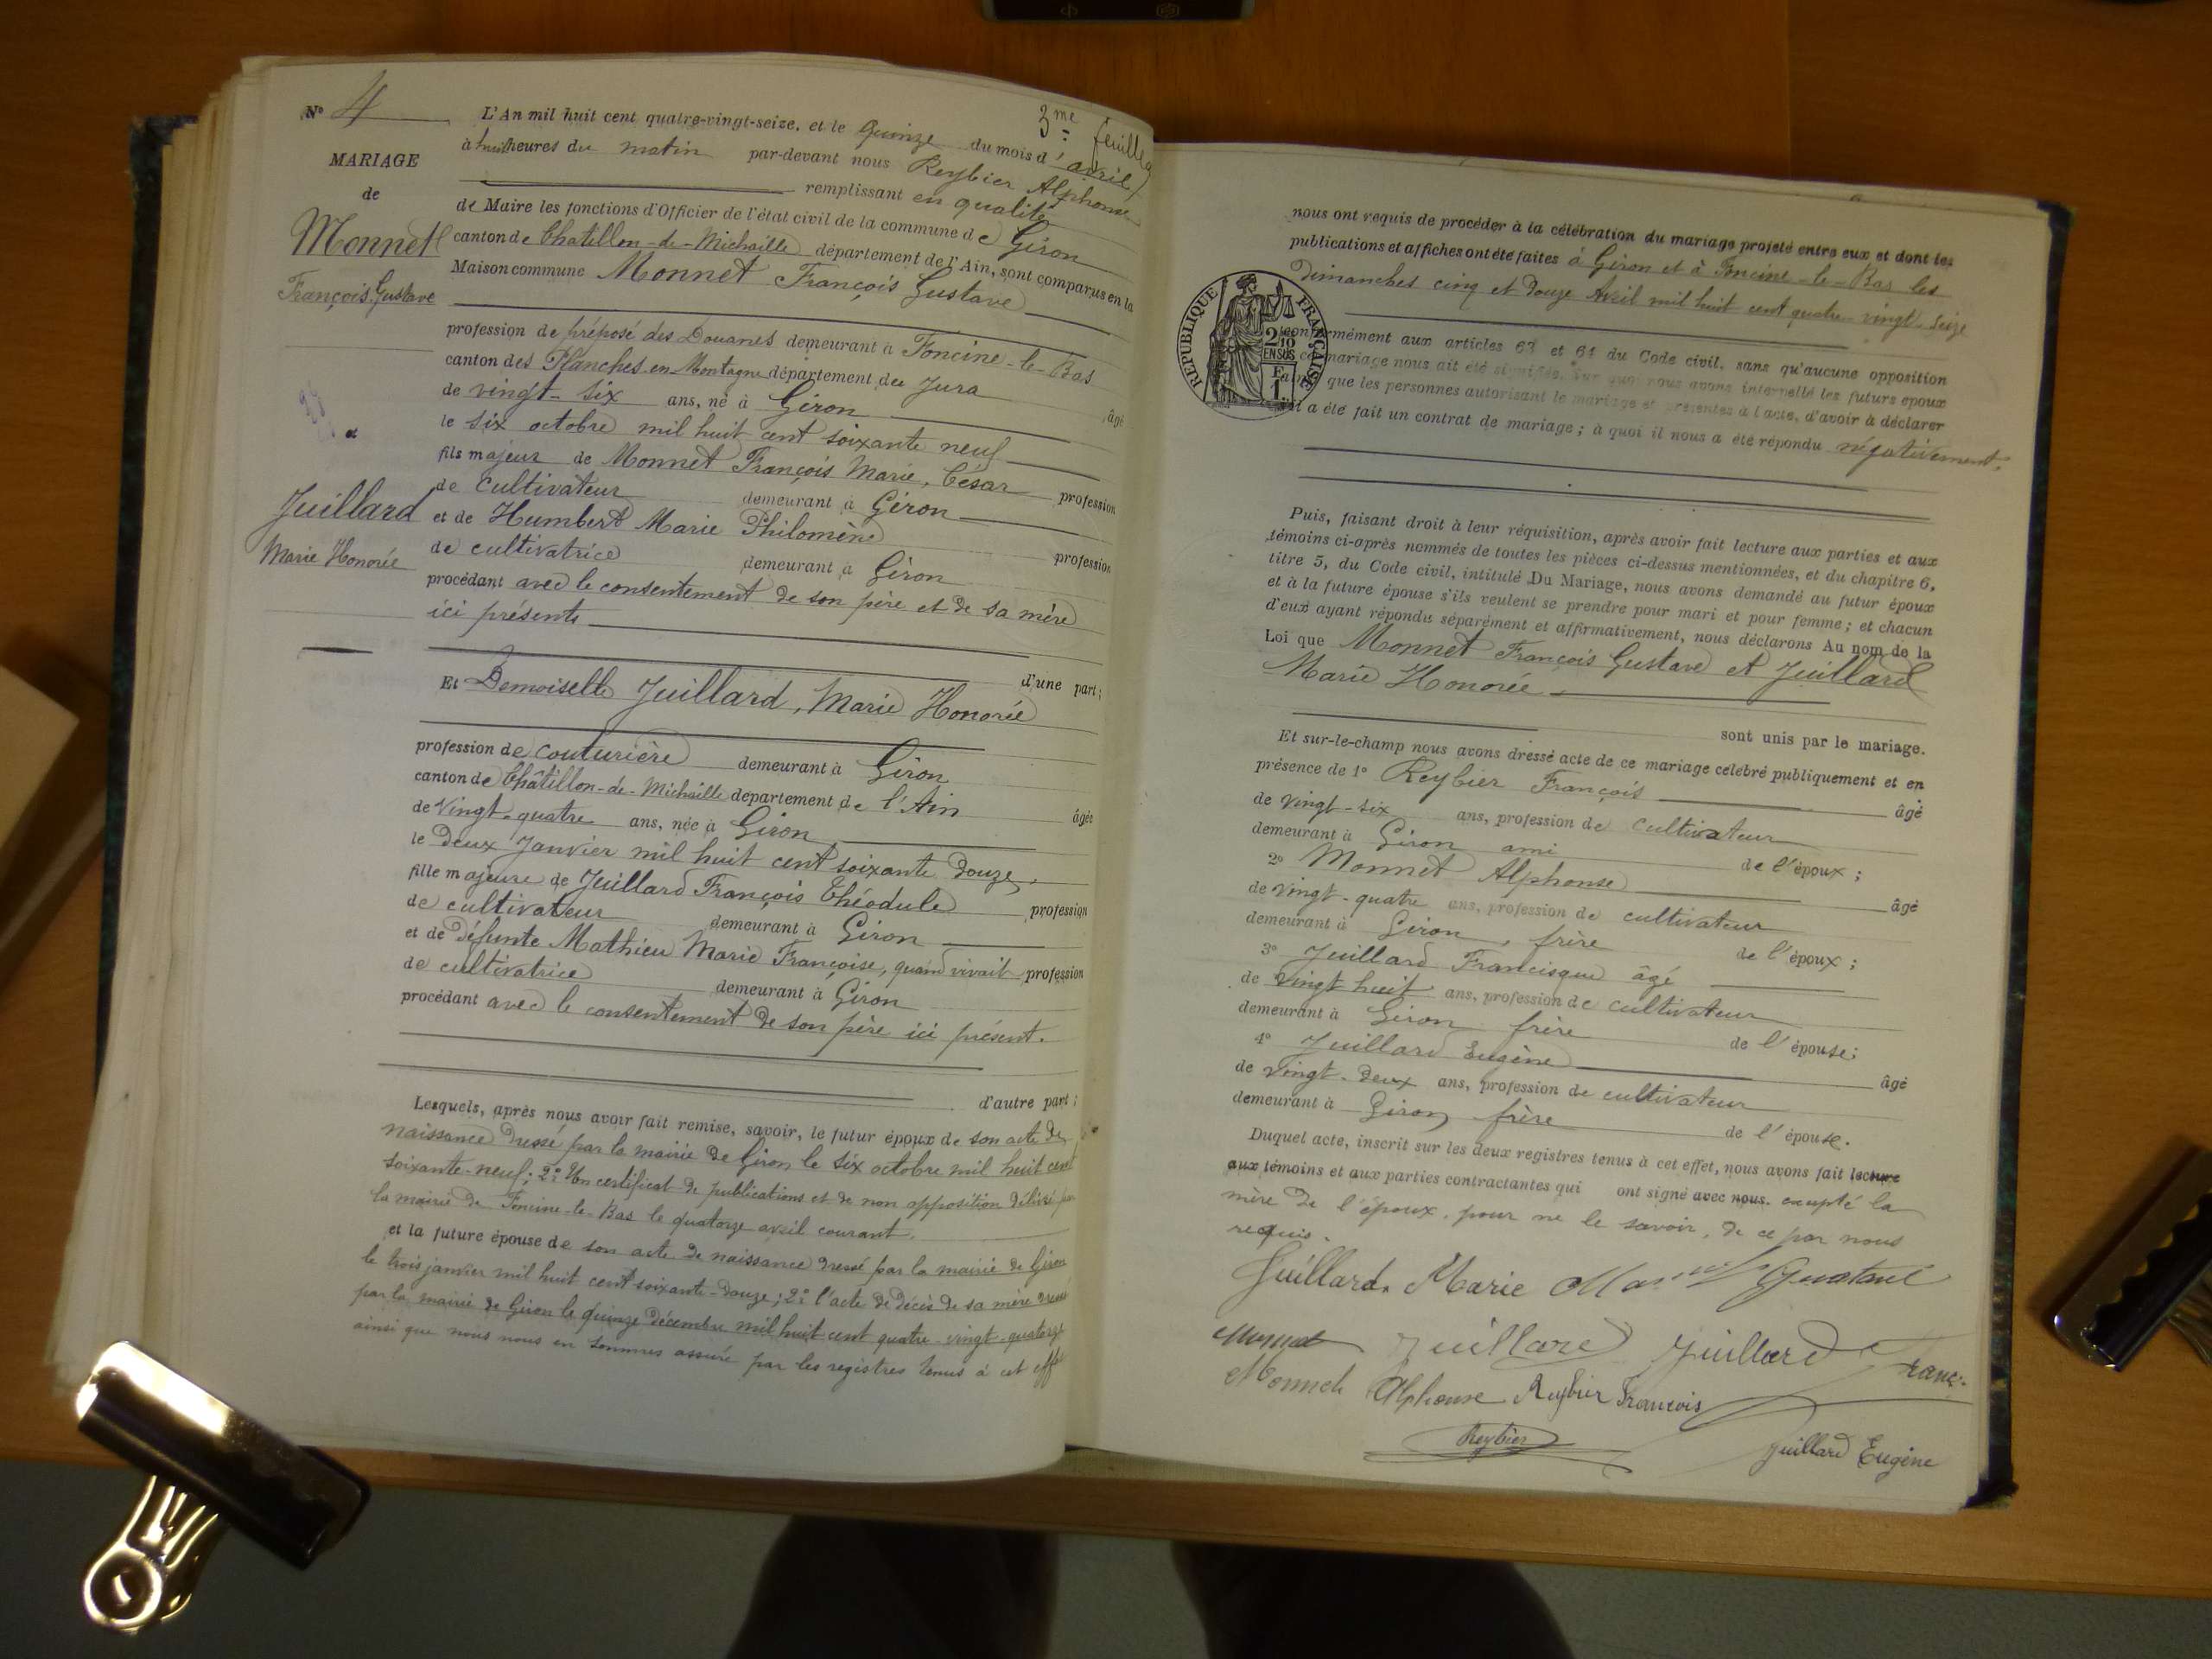 3me feuille
N° 4
MARIAGE
de
Monnet
François Gustave
et
Juillard
Marie Honorée
L'An mil huit cent quatre-vingt-seize, et le quinze du mois d'avril
à huit heures du matin par-devant nous Reybier Alphonse
remplissant en qualité
de Maire les fonctions d'Officier de l'état civil de la commune de Giron
canton de Chatillon-de-Michaille département de l'Ain, sont comparus en la
Maison commune Monnet François Gustave
profession de préposé des Douanes demeurant à Foncine-le-Bas
canton des Planches-en-Montagne département du Jura
âgé
de vingt-six ans, né à Giron
le six octobre mil huit cent soixante neuf
fils majeur de Monnet François Marie, César profession
de cultivateur demeurant à Giron
et de Humbert Marie Philomène profession
de cultivatrice demeurant à Giron
procédant avec le consentement de son père et de sa mère
ici présents
d'une part;
Et Demoiselle Juillard, Marie Honorée
profession de couturière demeurant à Giron
canton de Châtillon-de-Michaille département de l'Ain
âgée
de Vingt-quatre ans, née à Giron
le Deux Janvier mil huit cent soixante douze,
fille majeure de Juillard François Théodule profession
de cultivateur demeurant à Giron
et de défunte Mathieu Marie Françoise, quand vivait profession
de cultivatrice demeurant à Giron
procédant avec le consentement de son père ici présent.
d'autre part;
Lesquels, après nous avoir fait remise, savoir, le futur époux de son acte de
naissance dressé par la mairie de Giron le six octobre mil huit cent
soixante-neuf; 2° Un certificat de publications et de non opposition délivré par
la mairie de Foncine-le-Bas le quatorze avril courant.
et la future épouse de son acte de naissance dressé par la mairie de Giron
le trois janvier mil huit cent soixante-douze; 2° l'acte de décès de sa mère dressé
par la mairie de Giron le quinze décembre mil huit cent quatre-vingt-quatorze
ainsi que nous nous en sommes assuré par les registres tenus à cet effet
nous ont requis de procéder à la célébration du mariage projeté entre eux et dont les
publications et affiches ont été faites à Giron et à Foncine-le-Bas les
dimanches cinq et douze Avril mil huit cent quatre-vingt-seize
RÉPUBLIQUE FRANÇAISE
2/10
EN SUS
conformément aux articles 63 et 64 du Code civil, sans qu'aucune opposition
ce mariage nous ait été signifiée. Sur quoi nous avons interpellé les futurs époux
ainsi que les personnes autorisant le mariage et présentes à l'acte, d'avoir à déclarer
s'il a été fait un contrat de mariage; à quoi il nous a été répondu négativement.
Puis, faisant droit à leur réquisition, après avoir fait lecture aux parties et aux
témoins ci-après nommés de toutes les pièces ci-dessus mentionnées, et du chapitre 6,
titre 5, du Code civil, intitulé Du Mariage, nous avons demandé au futur époux
et à la future épouse s'ils veulent se prendre pour mari et pour femme; et chacun
d'eux ayant répondu séparément et affirmativement, nous déclarons Au nom de la
Loi que Monnet François Gustave et Juillard
Marie Honorée
sont unis par le mariage.
Et sur-le-champ nous avons dressé acte de ce mariage célébré publiquement et en
présence de 1° Reybier François âgé
de vingt-six ans, profession de cultivateur
demeurant à Giron ami de l'époux;
2° Monnet Alphonse âgé
de vingt-quatre ans, profession de cultivateur
demeurant à Giron, frère de l'époux;
3° Juillard Francisque âgé
de vingt huit ans, profession de cultivateur
demeurant à Giron frère de l'épouse;
4° Juillard Eugène âgé
de vingt-deux ans, profession de cultivateur
demeurant à Giron frère de l'épouse.
Duquel acte, inscrit sur les deux registres tenus à cet effet, nous avons fait lecture
aux témoins et aux parties contractantes qui ont signé avec nous. excepté la
mère de l'époux. pour ne le savoir, de ce par nous
requis.
Juillard. Marie Monnet Gustave
Monnet Juillard Juillard Franç.
Monnet Alphonse Reybier François
Reybier
Juillard Eugène